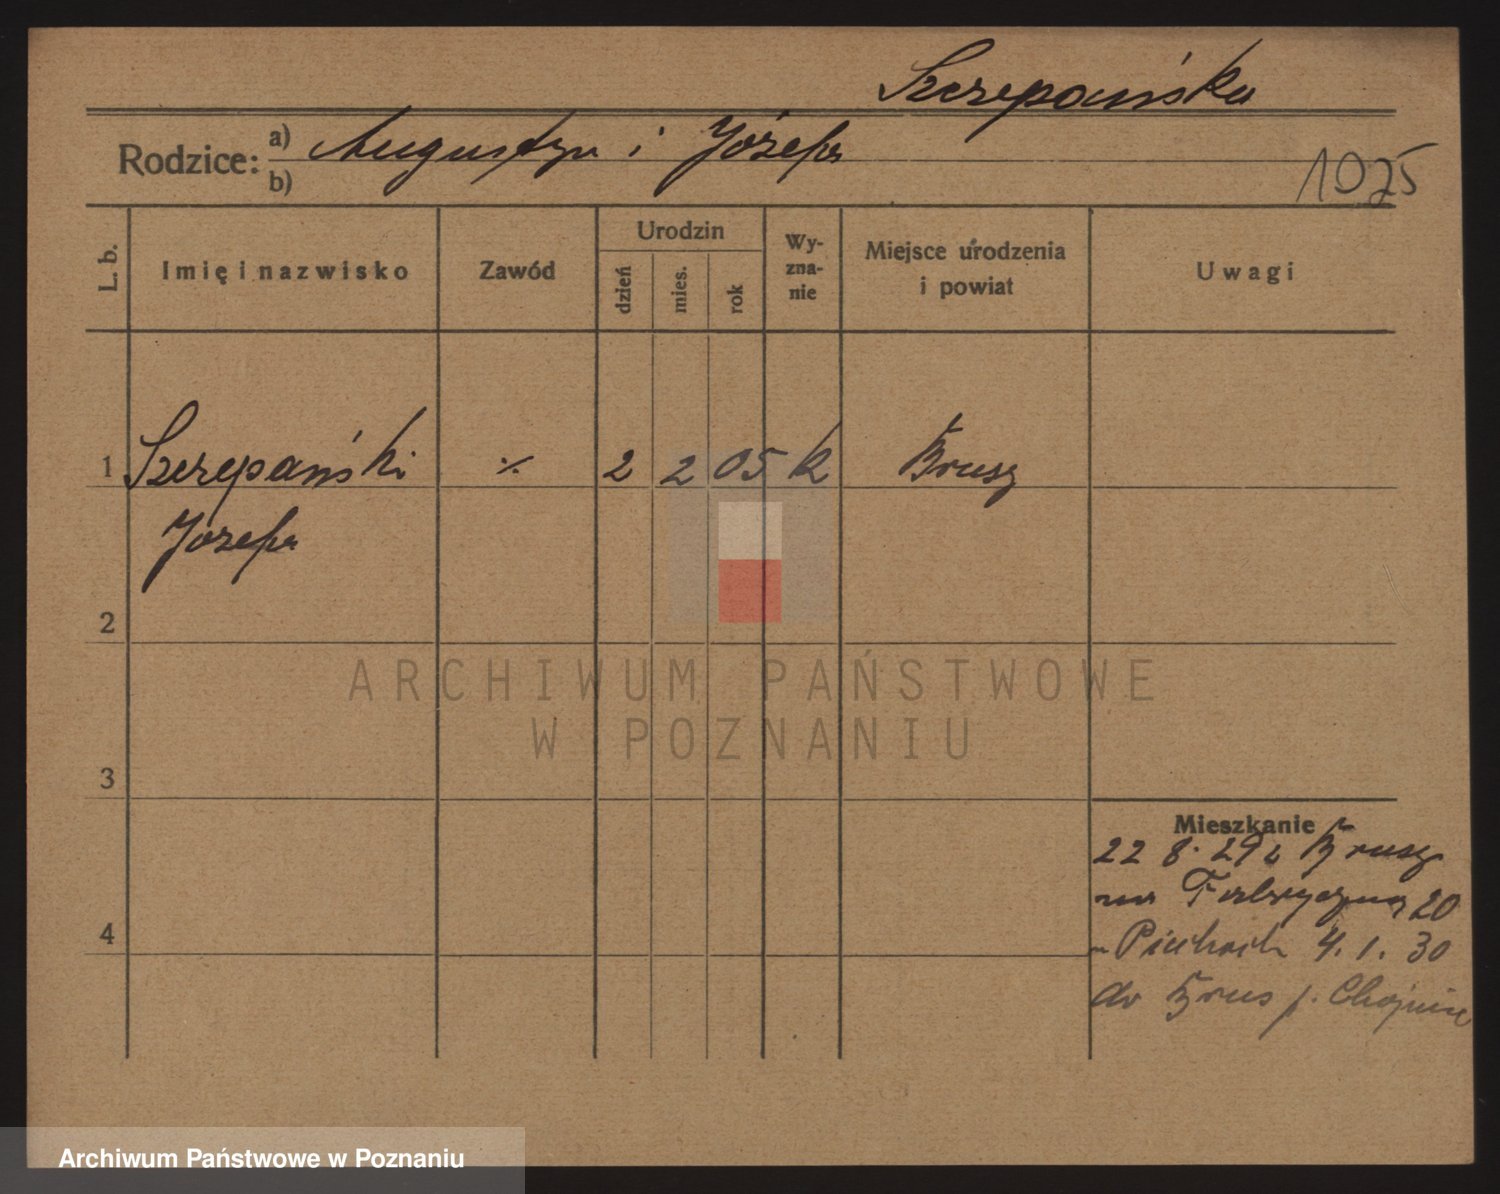 Szczepańska
Rodzice: a) Augustyn i Józefa
b)
1025
L. b.
Imię i nazwisko
Zawód
Urodzin
dzień
mies.
rok
Wy-
zna-
nie
Miejsce urodzenia
i powiat
Uwagi
1 Szczepański ٪ 2 2 05 k Brusy
Józefa
2
3
4
ARCHIWUM PAŃSTWOWE
W POZNANIU
Mieszkanie
22 8. 29 z Brusy
na Fabryczną 20
4. 1. 30
do Brus p. Chojnice
Archiwum Państwowe w Poznaniu